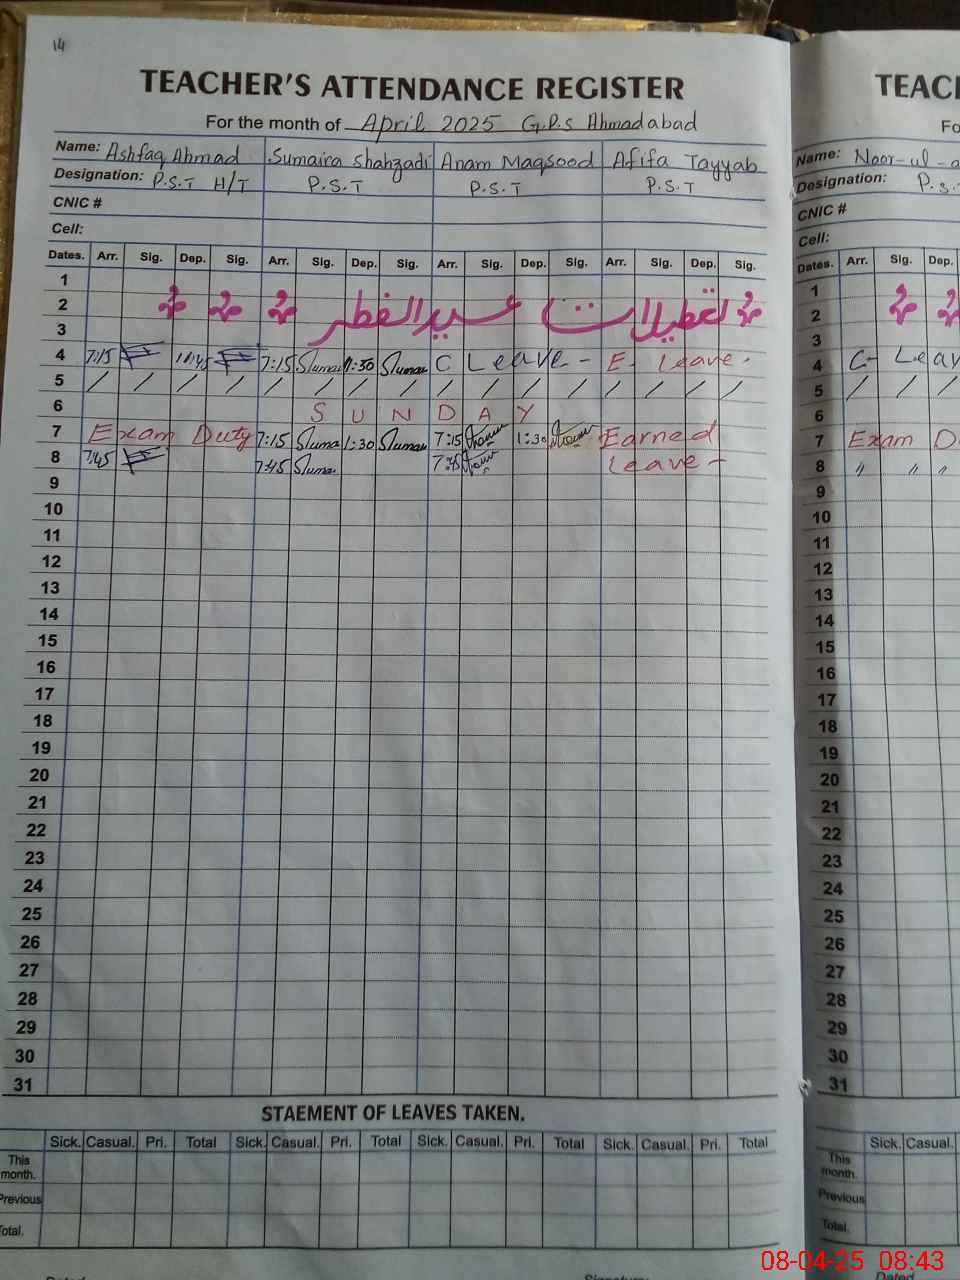 14
TEACHER'S ATTENDANCE REGISTER
For the month of April 2025 G.P.S Ahmadabad
Name: Ashfaq Ahmad Sumaira Shahzadi Anam Maqsood Afifa Tayyab
Designation: P.S.T H/T P.S.T P.S.T P.S.T
CNIC #
Cell:
Dates. Arr. Sig. Dep. Sig. Arr. Sig. Dep. Sig. Arr. Sig. Dep. Sig. Arr. Sig. Dep. Sig.
1
2 تعطیلات عیدالفطر
3
4 7:15 11:45 7:15 Suma 1:30 Suma C Leave - E. Leave -
5 / / / / / / / / / / / / / / / /
6 S U N D A Y
7 Exam Duty 7:15 Suma 1:30 Suma 7:15 1:30 Earned
8 7:45 7:45 Suma 7:45 Leave -
9
10
11
12
13
14
15
16
17
18
19
20
21
22
23
24
25
26
27
28
29
30
31
STAEMENT OF LEAVES TAKEN.
Sick. Casual. Pri. Total Sick. Casual. Pri. Total Sick. Casual. Pri. Total Sick. Casual. Pri. Total
This month.
Previous
Total.
TEAC
Fo
Name: Noor-ul-a
Designation: P.S.
CNIC #
Cell:
Dates. Arr. Sig. Dep.
1
2
3
4 C- Leav
5 / / /
6
7 Exam D
8 〃 〃 〃
9
10
11
12
13
14
15
16
17
18
19
20
21
22
23
24
25
26
27
28
29
30
31
Sick. Casual.
This month.
Previous
Total.
08-04-25 08:43